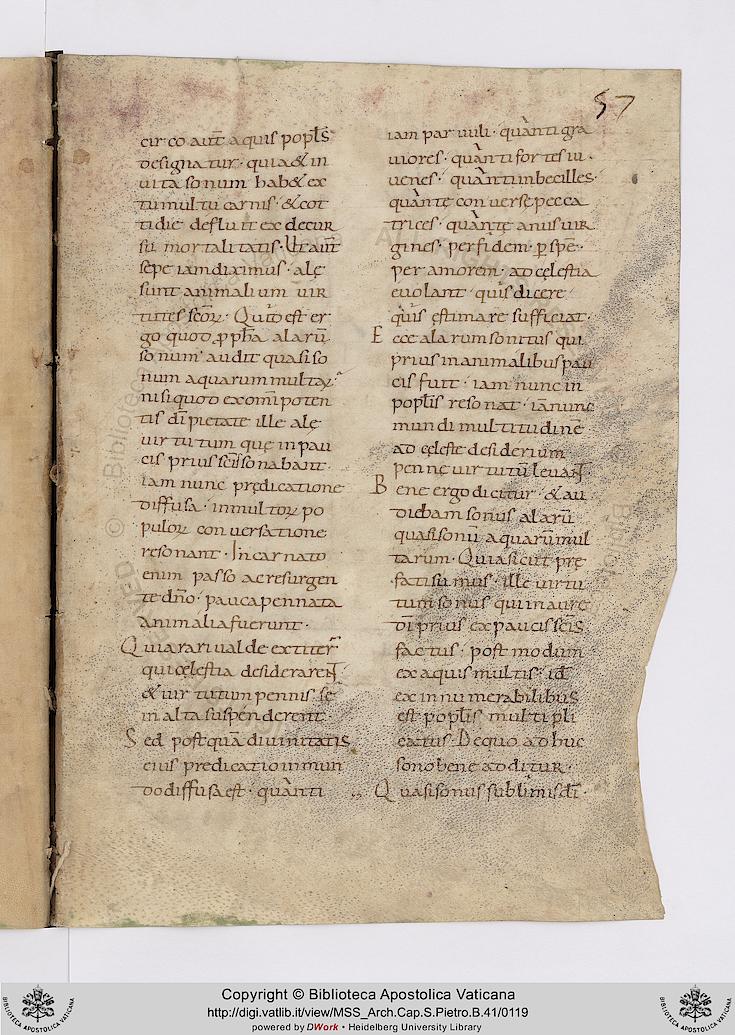 57
cir co aut̄ aquis popl̄s
designatur · quia & in
uita sonum hab& ex
tumultu carnis · & cot
tidie defluit ex decur
su mortalitatis · Ut aut̄
sepe iam diximus · alę
sunt animalium uir
tutes sc̄orꝝ · Quid est er
go quod ꝓph̄a alarū
sonum audit quasi so
num aquarum multaꝝ
nisi quod ex omīpoten
tis dī pietate ille alę
uirtutum quę in pau
cis prius sc̄is sonabant ·
iam nunc prędicatione
diffusa · in multoꝝ po
puloꝝ conuersatione
resonant · Incarnato
enim passo ac resurgen
te dn̄o · pauca pennata
animalia fuerunt ·
Quia rari ualde extiter̄
qui cęlestia desiderarent
& uirtutum pennis se
in alta suspenderent ·
Sed postquā diuinitatis
eius predicatio in mun
do diffusa est · quanti
iam paruuli · quanti gra
uiores · quanti fortes iu
uenes · quanti inbecilles ·
quantę conuersę pecca
trices · quantę anus uir
gines · per fidem · ꝑ spē ·
per amorem · ad cęlestia
euolant · quis dicere
quis ęstimare sufficiat ·
Ecce alarum sonitus qui
prius in animalibus pau
cis fuit · iam nunc in
popl̄is resonat · iā nunc
mundi multitudinē
ad cęleste desiderium
pennę uirtutū leuant
Bene ergo dicitur · & au
diebam sonus alarū
quasi sonū aquarū mul
tarum · Quia sicut prę
fati sumus · ille uirtu
tum sonus qui in aure
dī prius ex paucis sc̄is
factus · post modum
ex aquis multis · id ē
ex innumerabilibus
est popl̄is multipli
catus · De quo adhuc
sono bene additur ·
Quasi sonus sublimis dī ·
Copyright © Biblioteca Apostolica Vaticana
http://digi.vatlib.it/view/MSS_Arch.Cap.S.Pietro.B.41/0119
powered by DWork • Heidelberg University Library
BIBLIOTECA APOSTOLICA VATICANA
BIBLIOTECA APOSTOLICA VATICANA